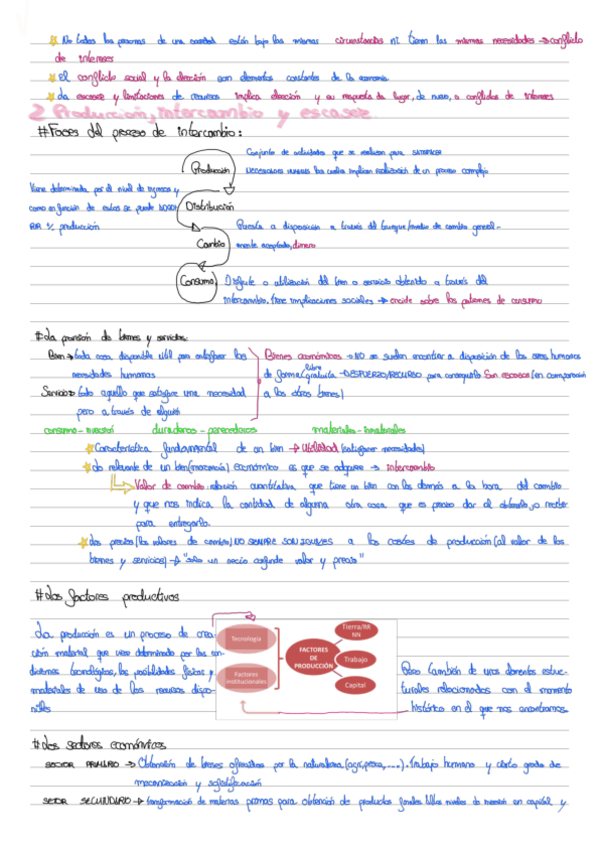 No todas las personas de una sociedad están bajo las mismas circunstancias ni tienen las mismas necesidades → conflicto
de intereses
el conflicto social y la elección son elementos constantes de la economía
La escasez y limitaciones de recursos implica elección y su respuesta da lugar, de nuevo, a conflictos de intereses
2 Producción, intercambio y escasez
#Fases del proceso de intercambio:
Conjunto de actividades que se realizan para SATISFACER
Producción
NECESIDADES HUMANAS las cuales implican realización de un proceso complejo
Viene determinada por el nivel de ingresos y
como en función de estos se puede
Distribución
% producción
Puesta a disposición a través del trueque/medio de cambio general-
Cambio
mente aceptado, dinero
Consumo
Disfrute o utilización del bien o servicio obtenido a través del
intercambio. tiene implicaciones sociales → incide sobre los patrones de consumo
#La provisión de bienes y servicios:
Bien → toda cosa disponible útil para satisfacer las
necesidades humanas
Bienes económicos → NO se suelen encontrar a disposición de los seres humanos
de forma libre gratuita → ESFUERZO/RECURSO para conseguirlo. Son escasos (en comparación
a los otros bienes)
Servicio → todo aquello que satisface una necesidad
pero a través de alguien
consumo - inversión duraderos - perecederos materiales - inmateriales
Característica fundamental de un bien → utilidad (satisfacer necesidades)
Lo relevante de un bien (mercancía) económico es que se adquiere → intercambio
Valor de cambio: relación cuantitativa que tiene un bien con los demás a la hora del cambio
y que nos indica la cantidad de alguna otra cosa que es preciso dar al obtenerlo, o recibir
para entregarlo.
Los precios (los valores de cambio) NO SIEMPRE SON IGUALES a los costes de producción (al valor de los
bienes y servicios) → "sólo un necio confunde valor y precio"
#Los factores productivos
La producción es un proceso de crea-
ción material que viene determinado por las con-
diciones tecnológicas, las posibilidades físicas y
materiales de uso de los recursos dispo-
nibles
Tecnología
Factores institucionales
FACTORES DE PRODUCCIÓN
Tierra/RR NN
Trabajo
Capital
Pero también de unos elementos estruc-
turales relacionados con el momento
histórico en el que nos encontramos.
#Los sectores económicos
SECTOR PRIMARIO → Obtención de bienes ofrecidos por la naturaleza (agri, pesca, ...). trabajo humano y cierto grado de
mecanización y sofisticación
SETOR SECUNDARIO → transformación de materias primas para obtención de productos finales. Altos niveles de inversión en capital y